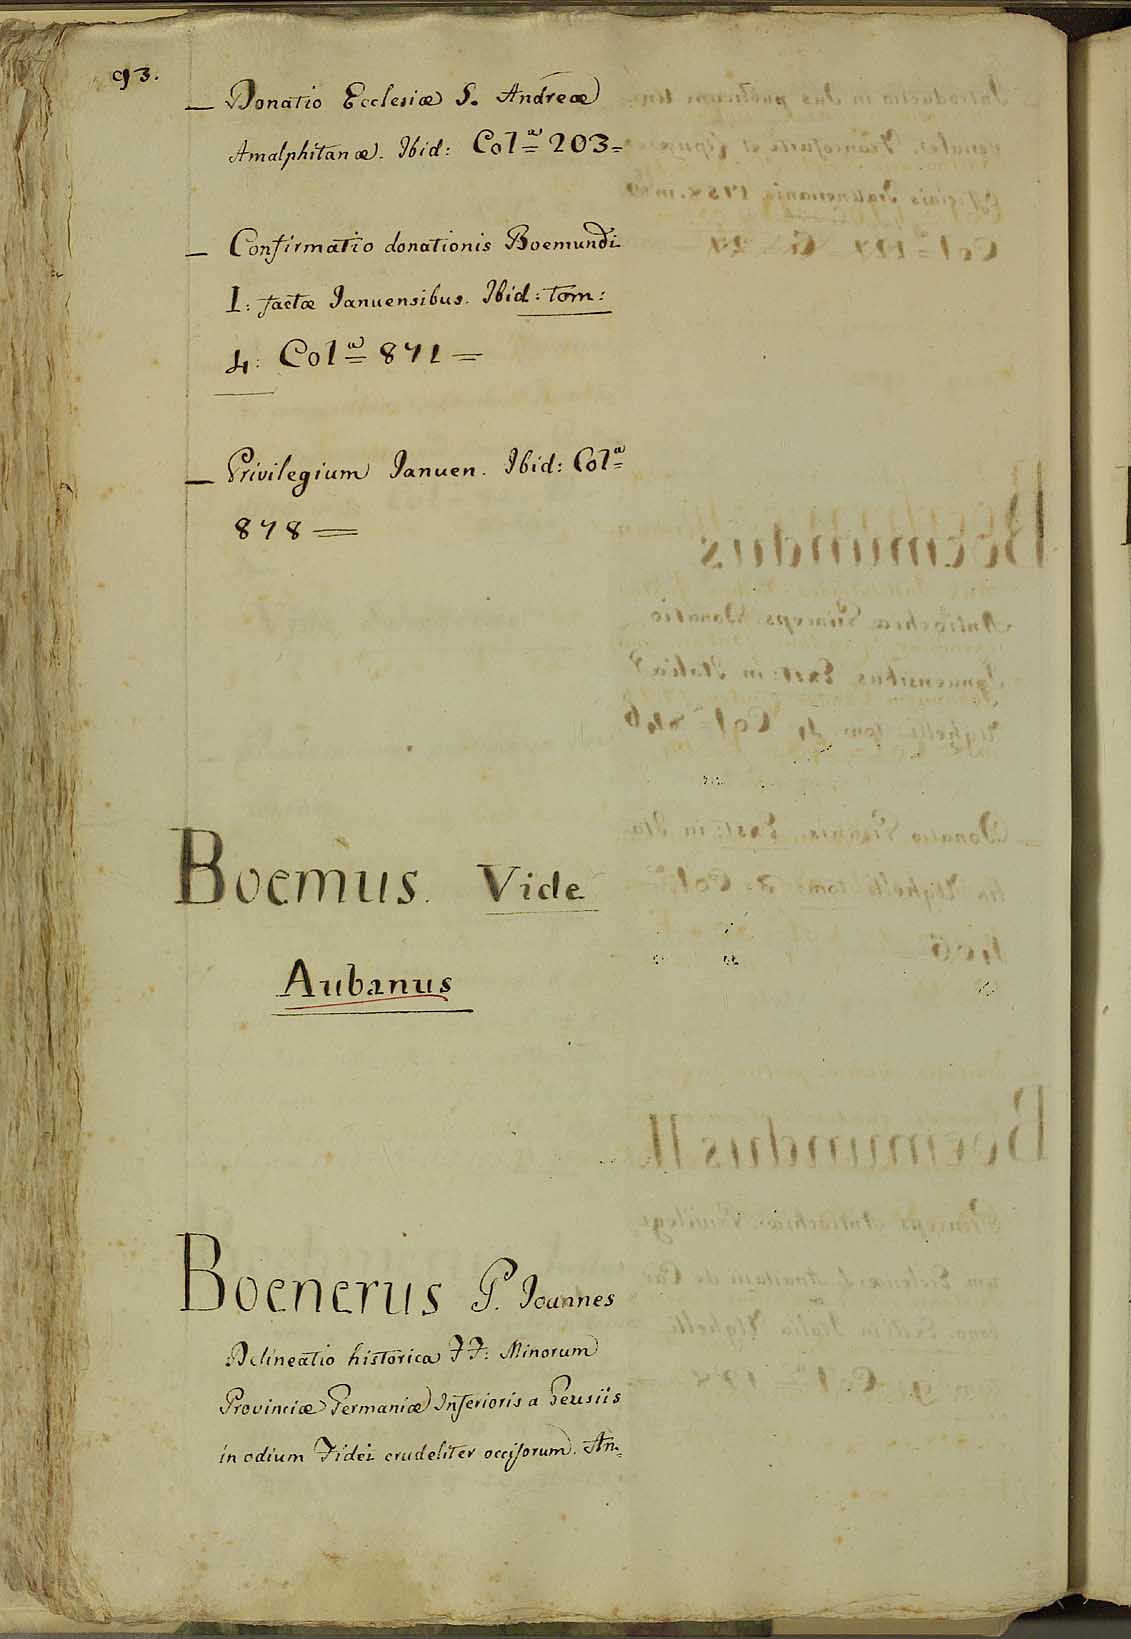 93.
— Donatio Ecclesiæ S. Andreæ
Amalphitanæ. Ibid: Colª 203=
— Confirmatio donationis Boemundi
I: factæ Ianuensibus. Ibid: tom:
4: Colª 871 —
— Privilegium Ianuen. Ibid: Colª
878 —
Boemus. Vide
Aubanus
Boenerus P. Ioannes
Delineatio historica FF: Minorum
Provinciæ Germaniæ Inferioris a Geusiis
in odium Fidei crudeliter occisorum. Am=